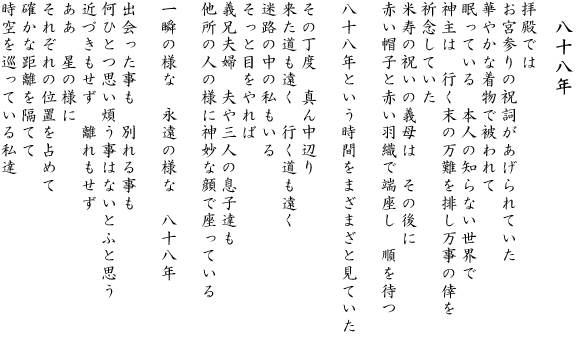 八十八年
拝殿では
お宮参りの祝詞があげられていた
華やかな着物で被われて
眠っている　本人の知らない世界で
神主は　行く末の万難を排し万事の倖を
祈念していた
米寿の祝いの義母は　その後に
赤い帽子と赤い羽織で端座し　順を待つ
八十八年という時間をまざまざと見ていた
その丁度　真ん中辺り
来た道も遠く　行く道も遠く
迷路の中の私もいる
そっと目をやれば
義兄夫婦　夫や三人の息子達も
他所の人の様に神妙な顔で座っている
一瞬の様な　永遠の様な　八十八年
出会った事も　別れる事も
何ひとつ思い煩う事はないとふと思う
近づきもせず　離れもせず
ああ　星の様に
それぞれの位置を占めて
確かな距離を隔てて
時空を巡っている私達